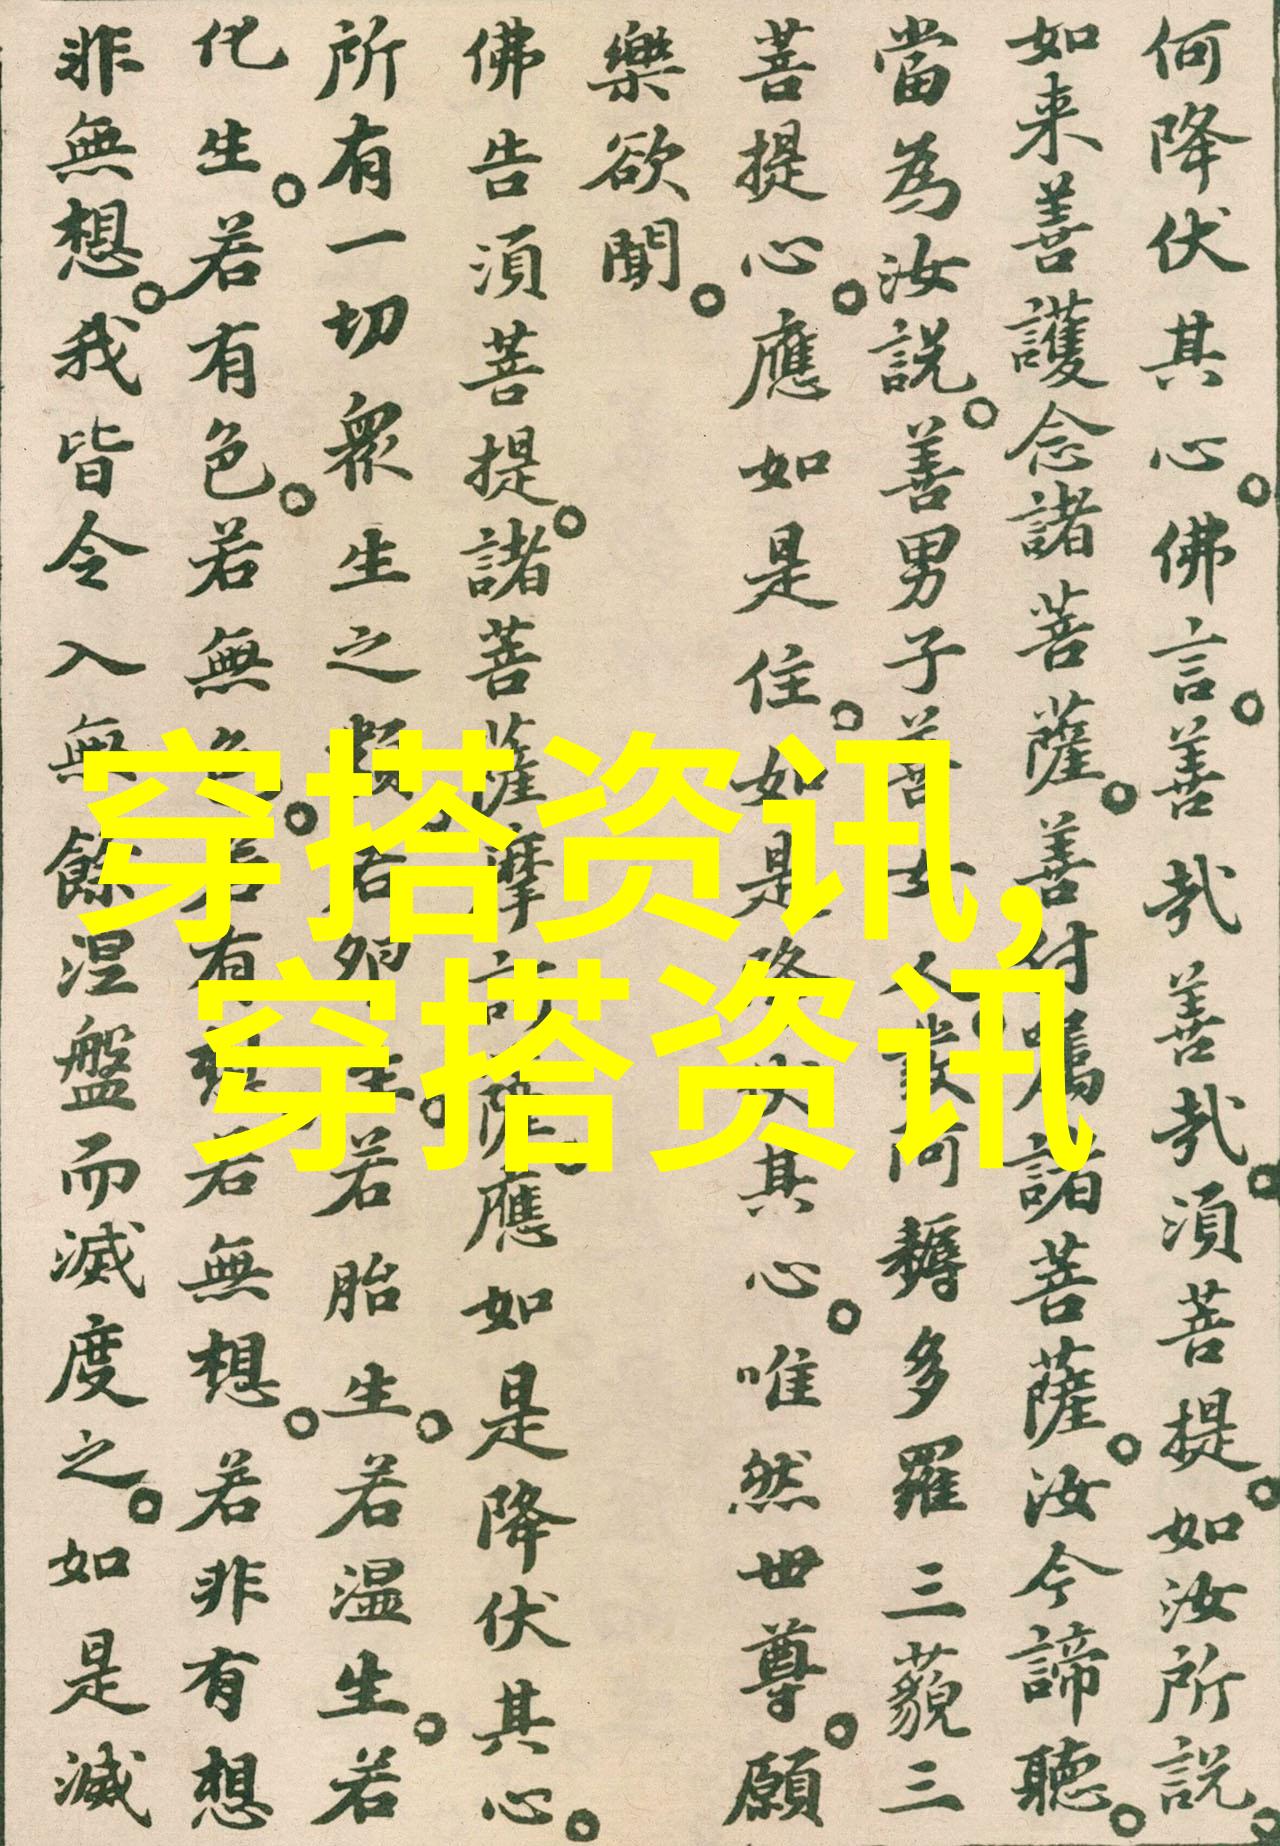 何降伏其心佛言善哉善哉須菩提如汝所説
如来善護念諸菩薩善付囑諸菩薩汝今諦聽
當為汝説善男子善女人發阿耨多羅三藐三
菩提心應如是住如是降伏其心唯然世尊願
樂欲聞
佛告須菩提諸菩薩摩訶薩應如是降伏其心
所有一切衆生之類若卵生若胎生若温生若
化生若有色若無色若有想若無想若非有想
非無想我皆令入無餘涅盤而滅度之如是滅
穿搭资讯,
穿搭资讯